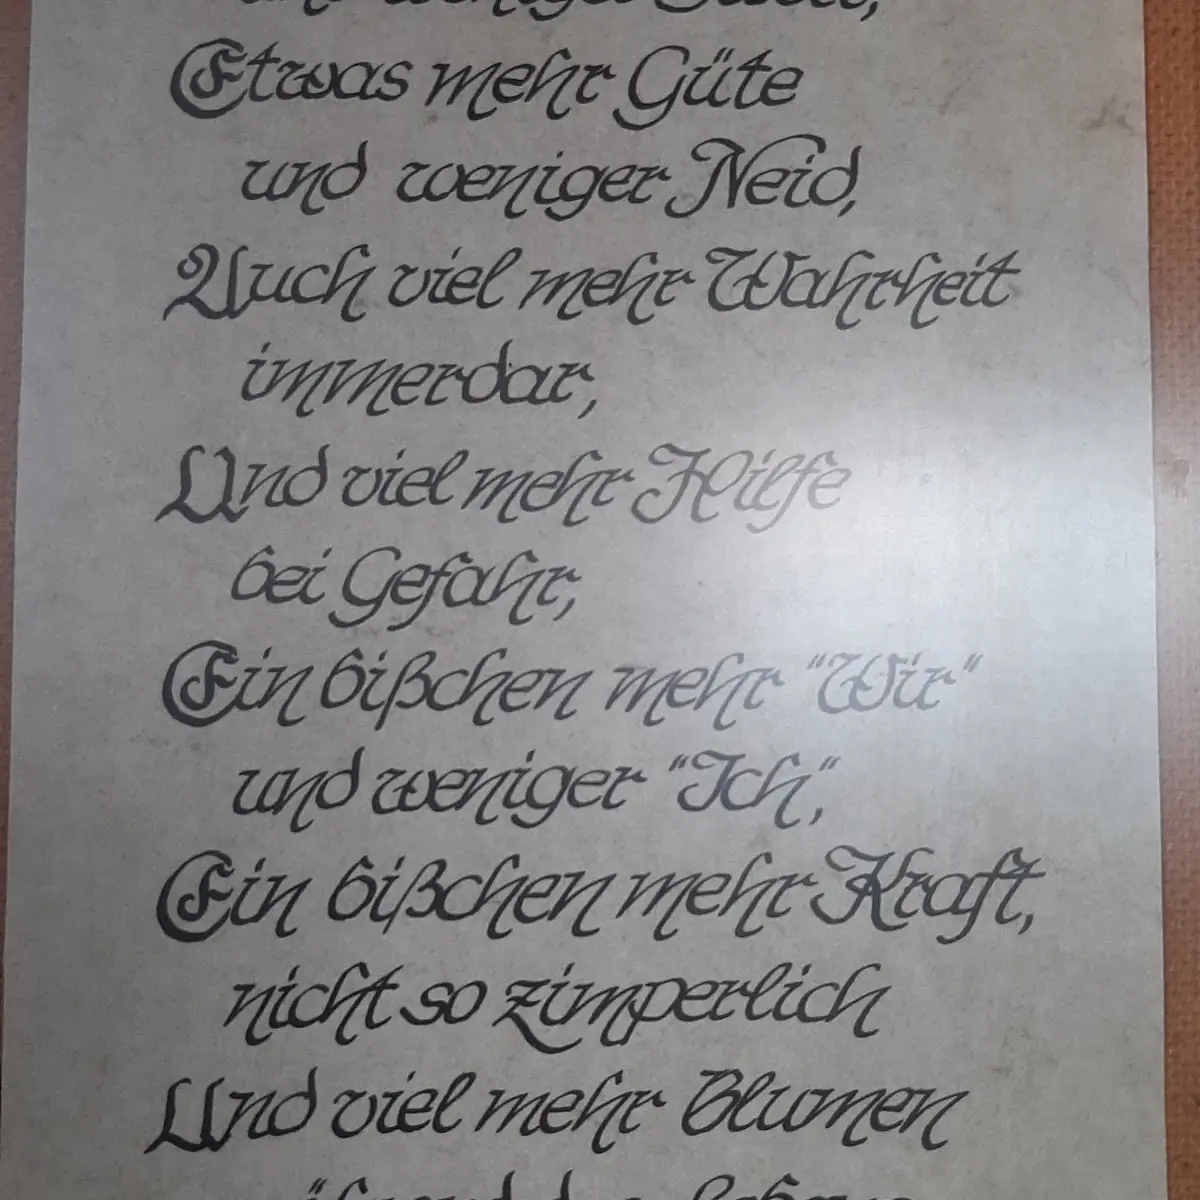 und weniger
Etwas mehr Güte
und weniger Neid,
Auch viel mehr Wahrheit
immerdar,
Und viel mehr Hilfe
bei Gefahr,
Ein bißchen mehr "Wir"
und weniger "Ich",
Ein bißchen mehr Kraft,
nicht so zimperlich
Und viel mehr Blumen